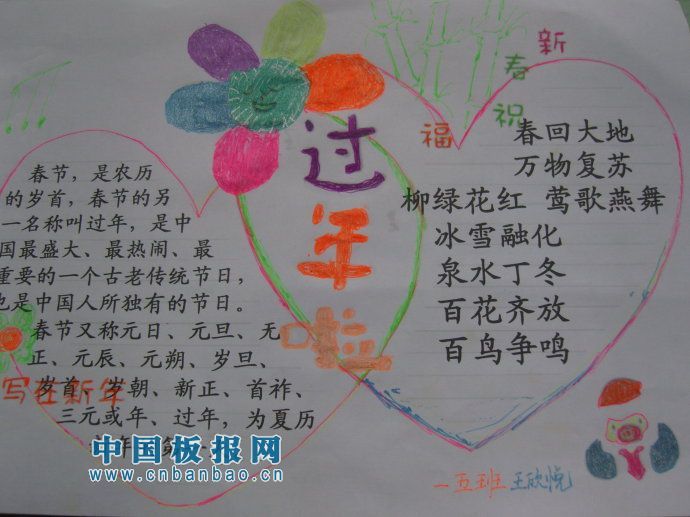 新春祝福
过年啦
春节，是农历
的岁首，春节的另
一名称叫过年，是中
国最盛大、最热闹、最
重要的一个古老传统节日，
也是中国人所独有的节日。
春节又称元日、元旦、无
正、元辰、元朔、岁旦、
岁首、岁朝、新正、首祚、
三元或年、过年，为夏历
写在新年
春回大地
万物复苏
柳绿花红 莺歌燕舞
冰雪融化
泉水丁冬
百花齐放
百鸟争鸣
一五班 王欣悦
中国板报网
www.cnbanbao.cn